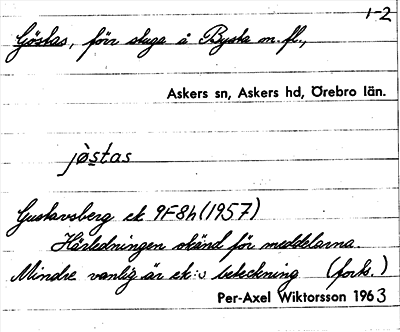 1-2
Göstas, förr stuga å Bysta m. fl.,
Askers sn, Askers hd, Örebro län.
jö̀stas
Gustavsberg ek 9F8h (1957)
Härledningen okänd för meddelarna
Mindre vanlig är ek:s beteckning (forts.)
Per-Axel Wiktorsson 1963